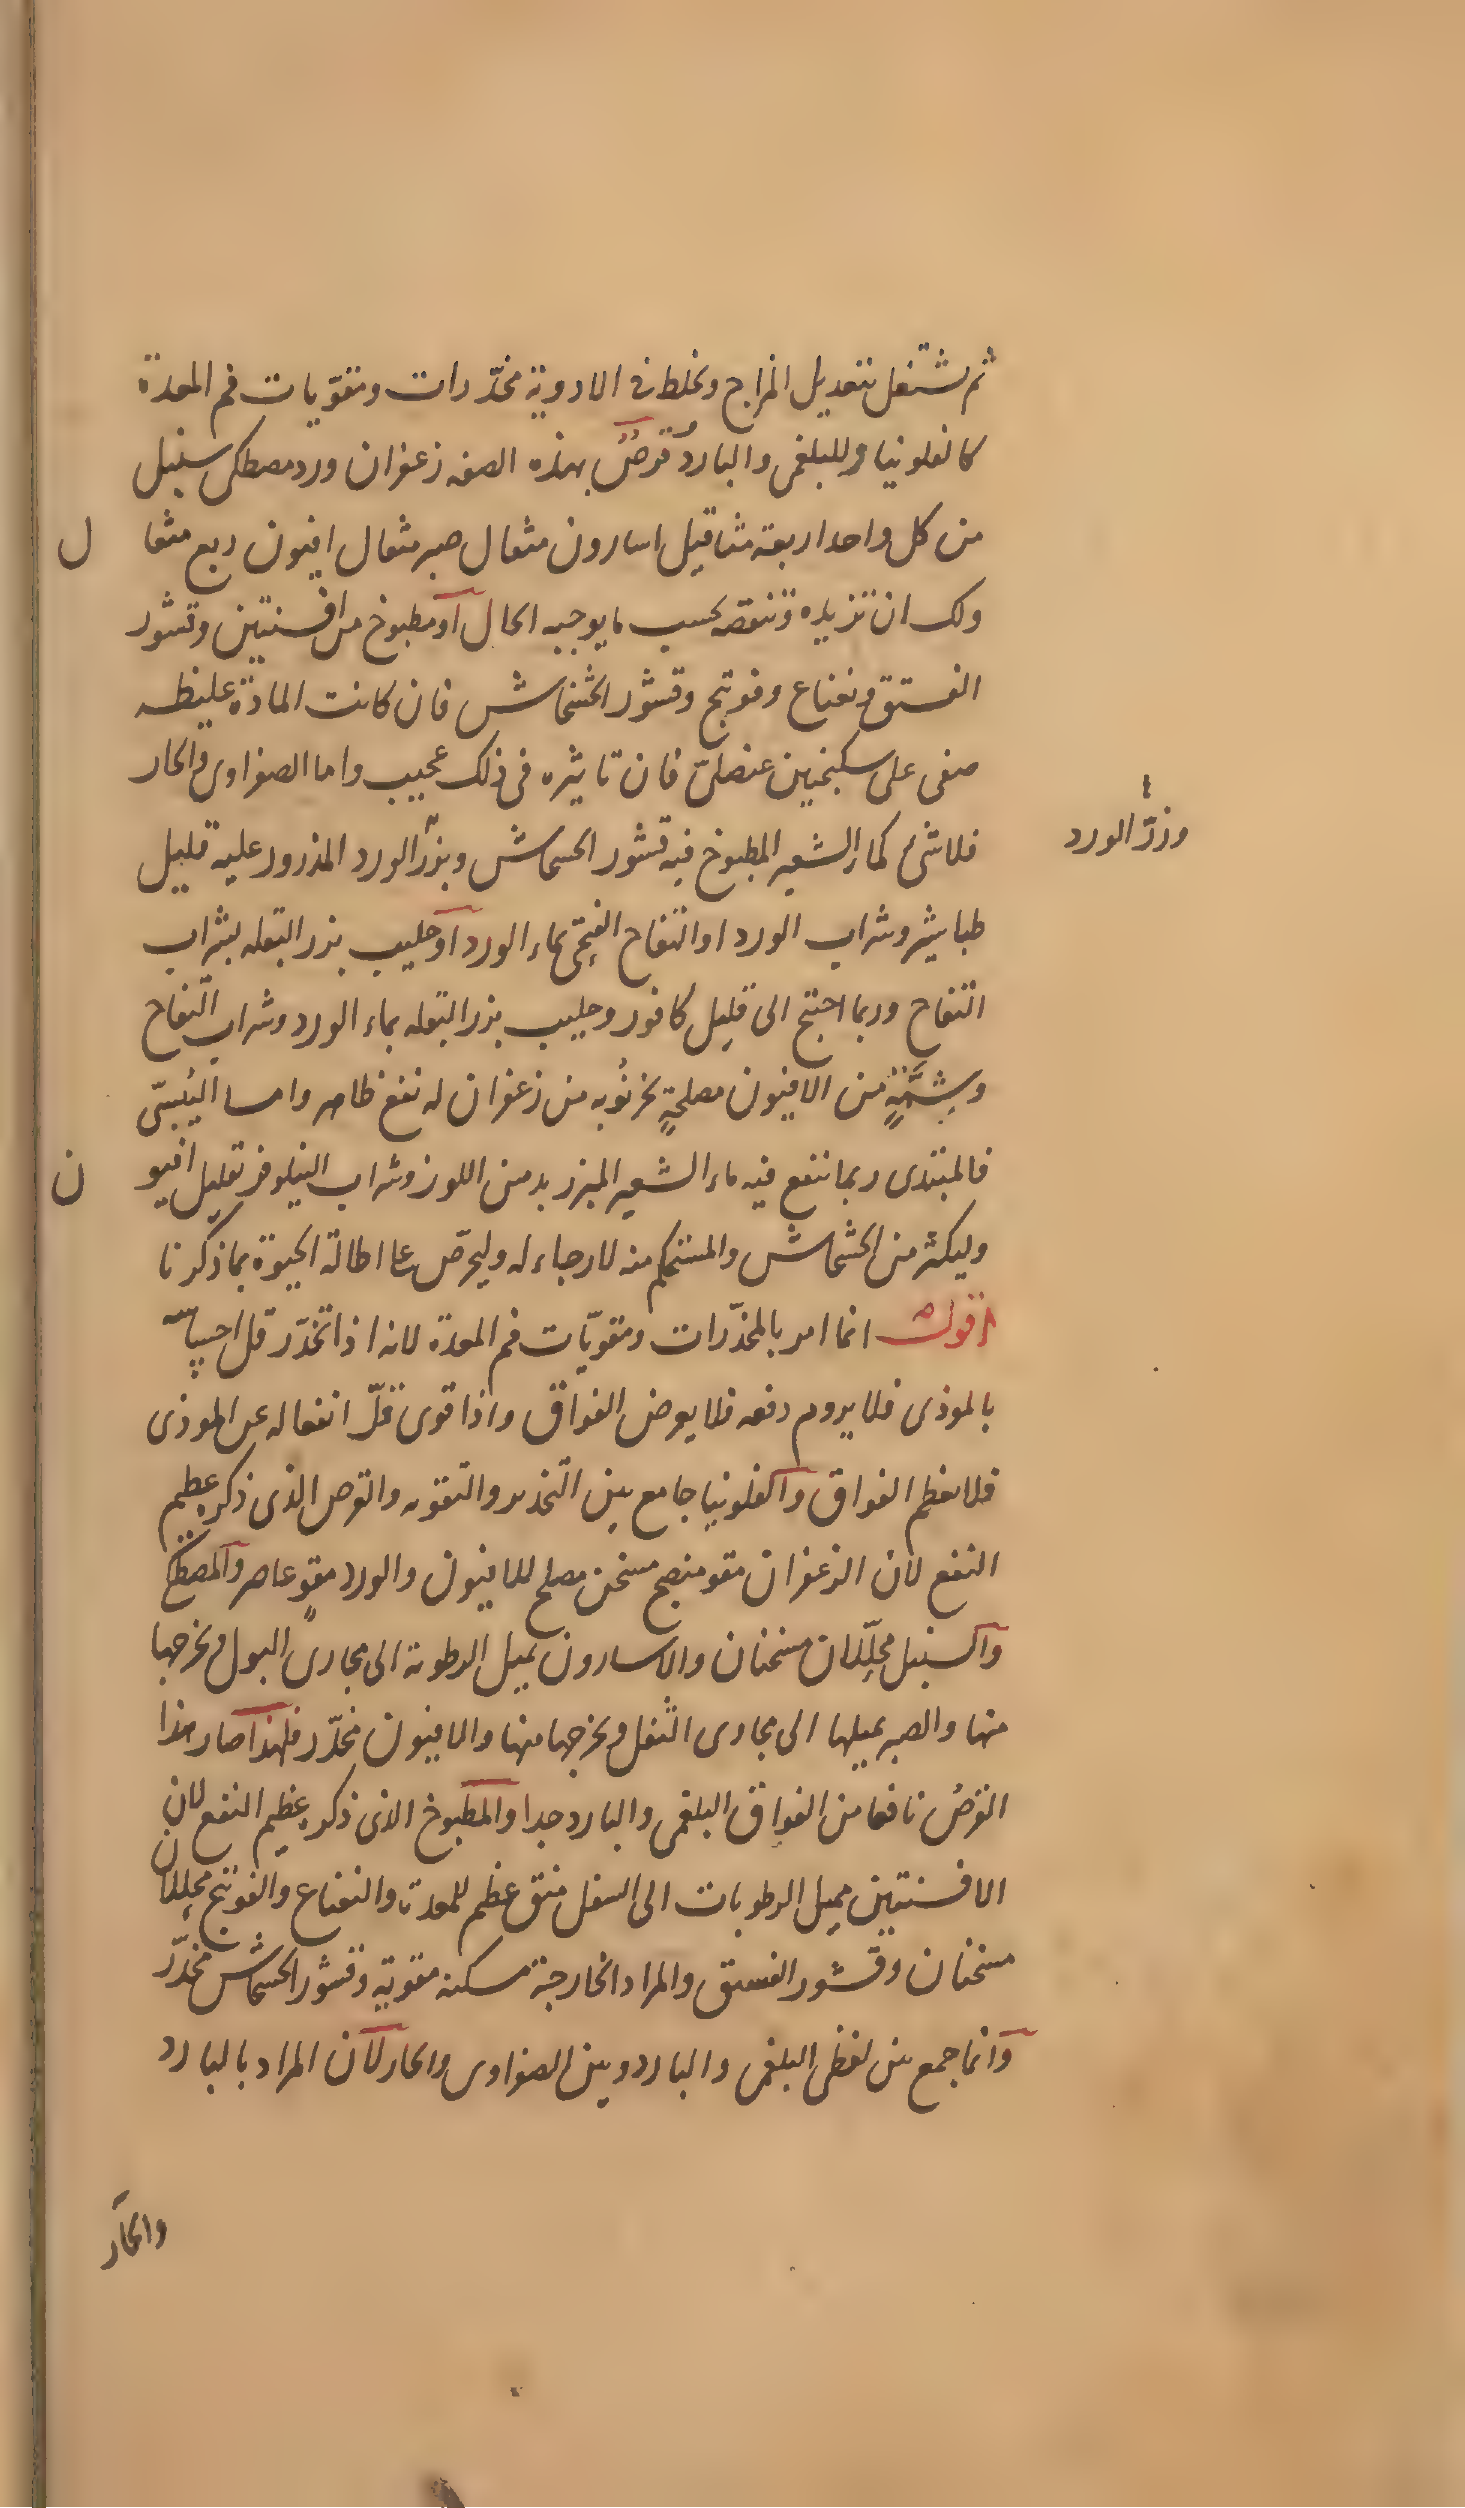 ثم يشتغل بتعديل المزاج ويخلط فى الادوية مخدّرات ومقوّيات فم المعدة
كالفلونيا وللبلغمى والبارد قرصٌ بهذه الصفه زعفران ورد مصطكى سنبل
من كل واحد اربعة مثاقيل اسارون مثقال صبر مثقال افيون ربع مثقال
ولك ان تزيده وتنقصه بحسب ما يوجبه الحال او مطبوخ من افسنتين وقشور
الفستق ونعناع وفوتنج وقشور الخشخاش فان كانت المادّة غليظه
صفى على سكنجبين عنصلىّ فان تاثيره فى ذلك عجيب واما الصفراوى والحار
فلا شئ كماء الشعير المطبوخ فيه قشور الخشخاش وبزر الورد المذرور عليه قليل
وزرّ الورد
طباشير وشراب الورد او التفاح الفجّى بماء الورد او حليب بزر البقله بشراب
التفاح وربما احتيج الى قليل كافور وحليب بزر البقله بماء الورد وشراب التفاح
وبشمّةٍ من الافيون مصلحةٍ بخرنُوبه من زعفران له نفع ظاهر واما اليُبسىّ
فالمبتدى ربما نفع فيه ماء الشعير المبزر بدهن اللوز وشراب النيلوفر بقليل افيون
وليكثر من الخشخاش والمستحكم منه لا رجاء له وليحرّص على اطالة الحيوة بما ذكرنا
اقول انما امر بالمخدّرات ومقويّات فم المعدة لانه اذا تخدّر قل احساسه
بالموذى فلا يروم دفعه فلا يعرض الفواق واذا قوى قلّ انفعاله عن الموذى
فلا يعظم الفواق والفلونيا جامع بين التخدير والتقويه والقرص الذى ذكره عظيم
النفع لان الزعفران مقو منضج مسخن مصلح للافيون والورد مقوٍ عاصر والمصطكى
والسنبل محلّلان مسخنان والاسارون يميل الرطوبة الى مجارى البول ويخرجها
منها والصبر يميلها الى مجارى الثفل ويخرجها منها والافيون مخدّر فلهذا صار هذا
القرصُ نافعا من الفواق البلغمى والبارد جدا والمطبوخ الذى ذكره عظيم النفع لان
الافسنتين يميل الرطوبات الى اسفل منق عظم للمعدة والنعناع والفوتنج محللان
مسخنان وقشور الفستق والمراد الخارجة مسكنه مقوية وقشور الخشخاش مخدّر
وانما جمع بين لفظى البلغمى والبارد وبين الصفراوى والحار لان المراد بالبارد
والحار